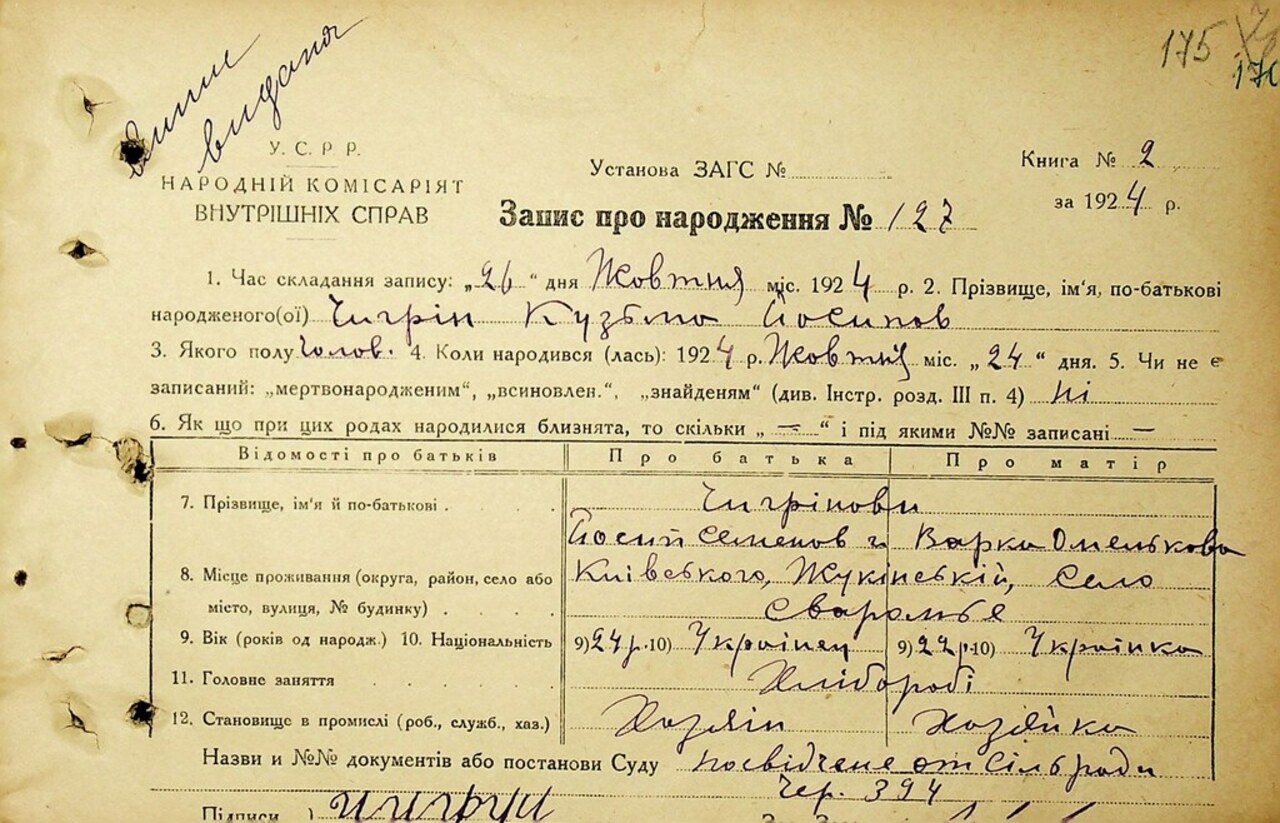 175
170
виписи
видана
У. С. Р. Р.
НАРОДНІЙ КОМІСАРІЯТ
ВНУТРІШНІХ СПРАВ
Установа ЗАГС №
Книга № 2
за 1924 р.
Запис про народження № 127
1. Час складання запису: „26“ дня Жовтня міс. 1924 р. 2. Прізвище, ім'я, по-батькові
народженого(ої) Чигрін Кузьма Йосипов
3. Якого полу Чолов. 4. Коли народився (лась): 1924 р. Жовтня міс. „24“ дня. 5. Чи не є
записаний: „мертвонародженим“, „всиновлен.“, „знайденям“ (див. Інстр. розд. III п. 4) ні
6. Як що при цих родах народилися близнята, то скільки „—“ і під якими №№ записані —
Відомості про батьків Про батька Про матір
7. Прізвище, ім'я й по-батькові Чигрінови
Йосип Семенов и Варка Омелькова
8. Місце проживання (округа, район, село або Київського, Жукінський, село
місто, вулиця, № будинку) Сваромье
9. Вік (років од народж.) 10. Національність 9) 24 р. 10) Українец 9) 22 р. 10) Українка
11. Головне заняття Хлібороби
12. Становище в промислі (роб., служб., хаз.) Хозяїн Хозяйка
Назви и №№ документів або постанови Суду посвідчене от Сільради
Чер. 394
Підписи